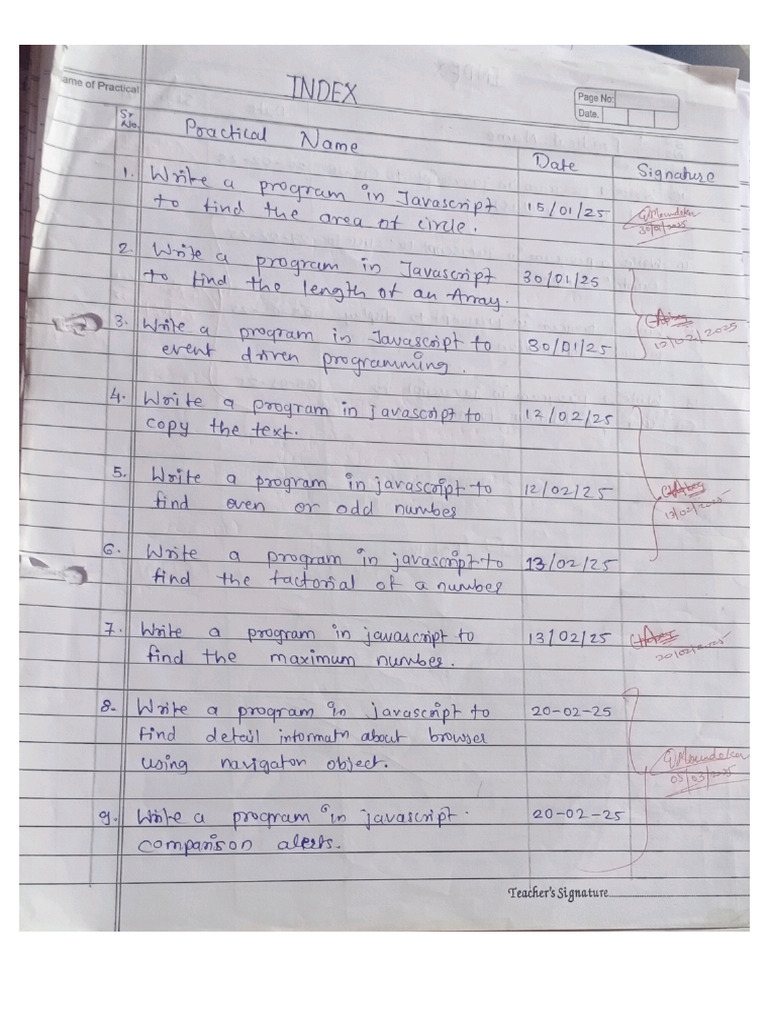 ame of Practical
INDEX
Page No:
Date.
Sr No.
Practical Name
Date
Signature
1. Write a program in Javascript
to find the area of circle.
15/01/25
30/01/2025
2. Write a program in Javascript
to find the length of an Array.
30/01/25
3. Write a program in Javascript to
event driven programming.
30/01/25
12/02/2025
4. Write a program in javascript to
copy the text.
12/02/25
5. Write a program in javascript to
find even or odd number
12/02/25
13/02/2025
6. Write a program in javascript to
find the factorial of a number
13/02/25
7. Write a program in javascript to
find the maximum number.
13/02/25
20/02/2025
8. Write a program in javascript to
find detail informatn about browser
using navigator object.
20-02-25
05/03/2025
9. Write a program in javascript
comparison alerts.
20-02-25
Teacher's Signature